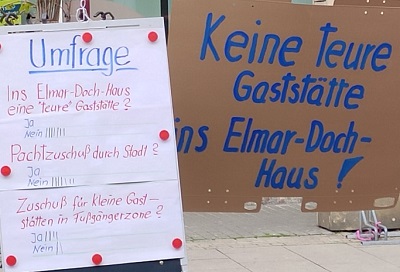 Umfrage
Ins Elmar-Doch-Haus
eine "teure" Gaststätte?
Ja
Nein ||||||
Pachtzuschuß durch Stadt?
Ja
Nein ||||||
Zuschuß für kleine Gast-
stätten in Fußgängerzone?
Ja ||||
Nein ||
Keine teure
Gaststätte
ins Elmar-Doch-
Haus!